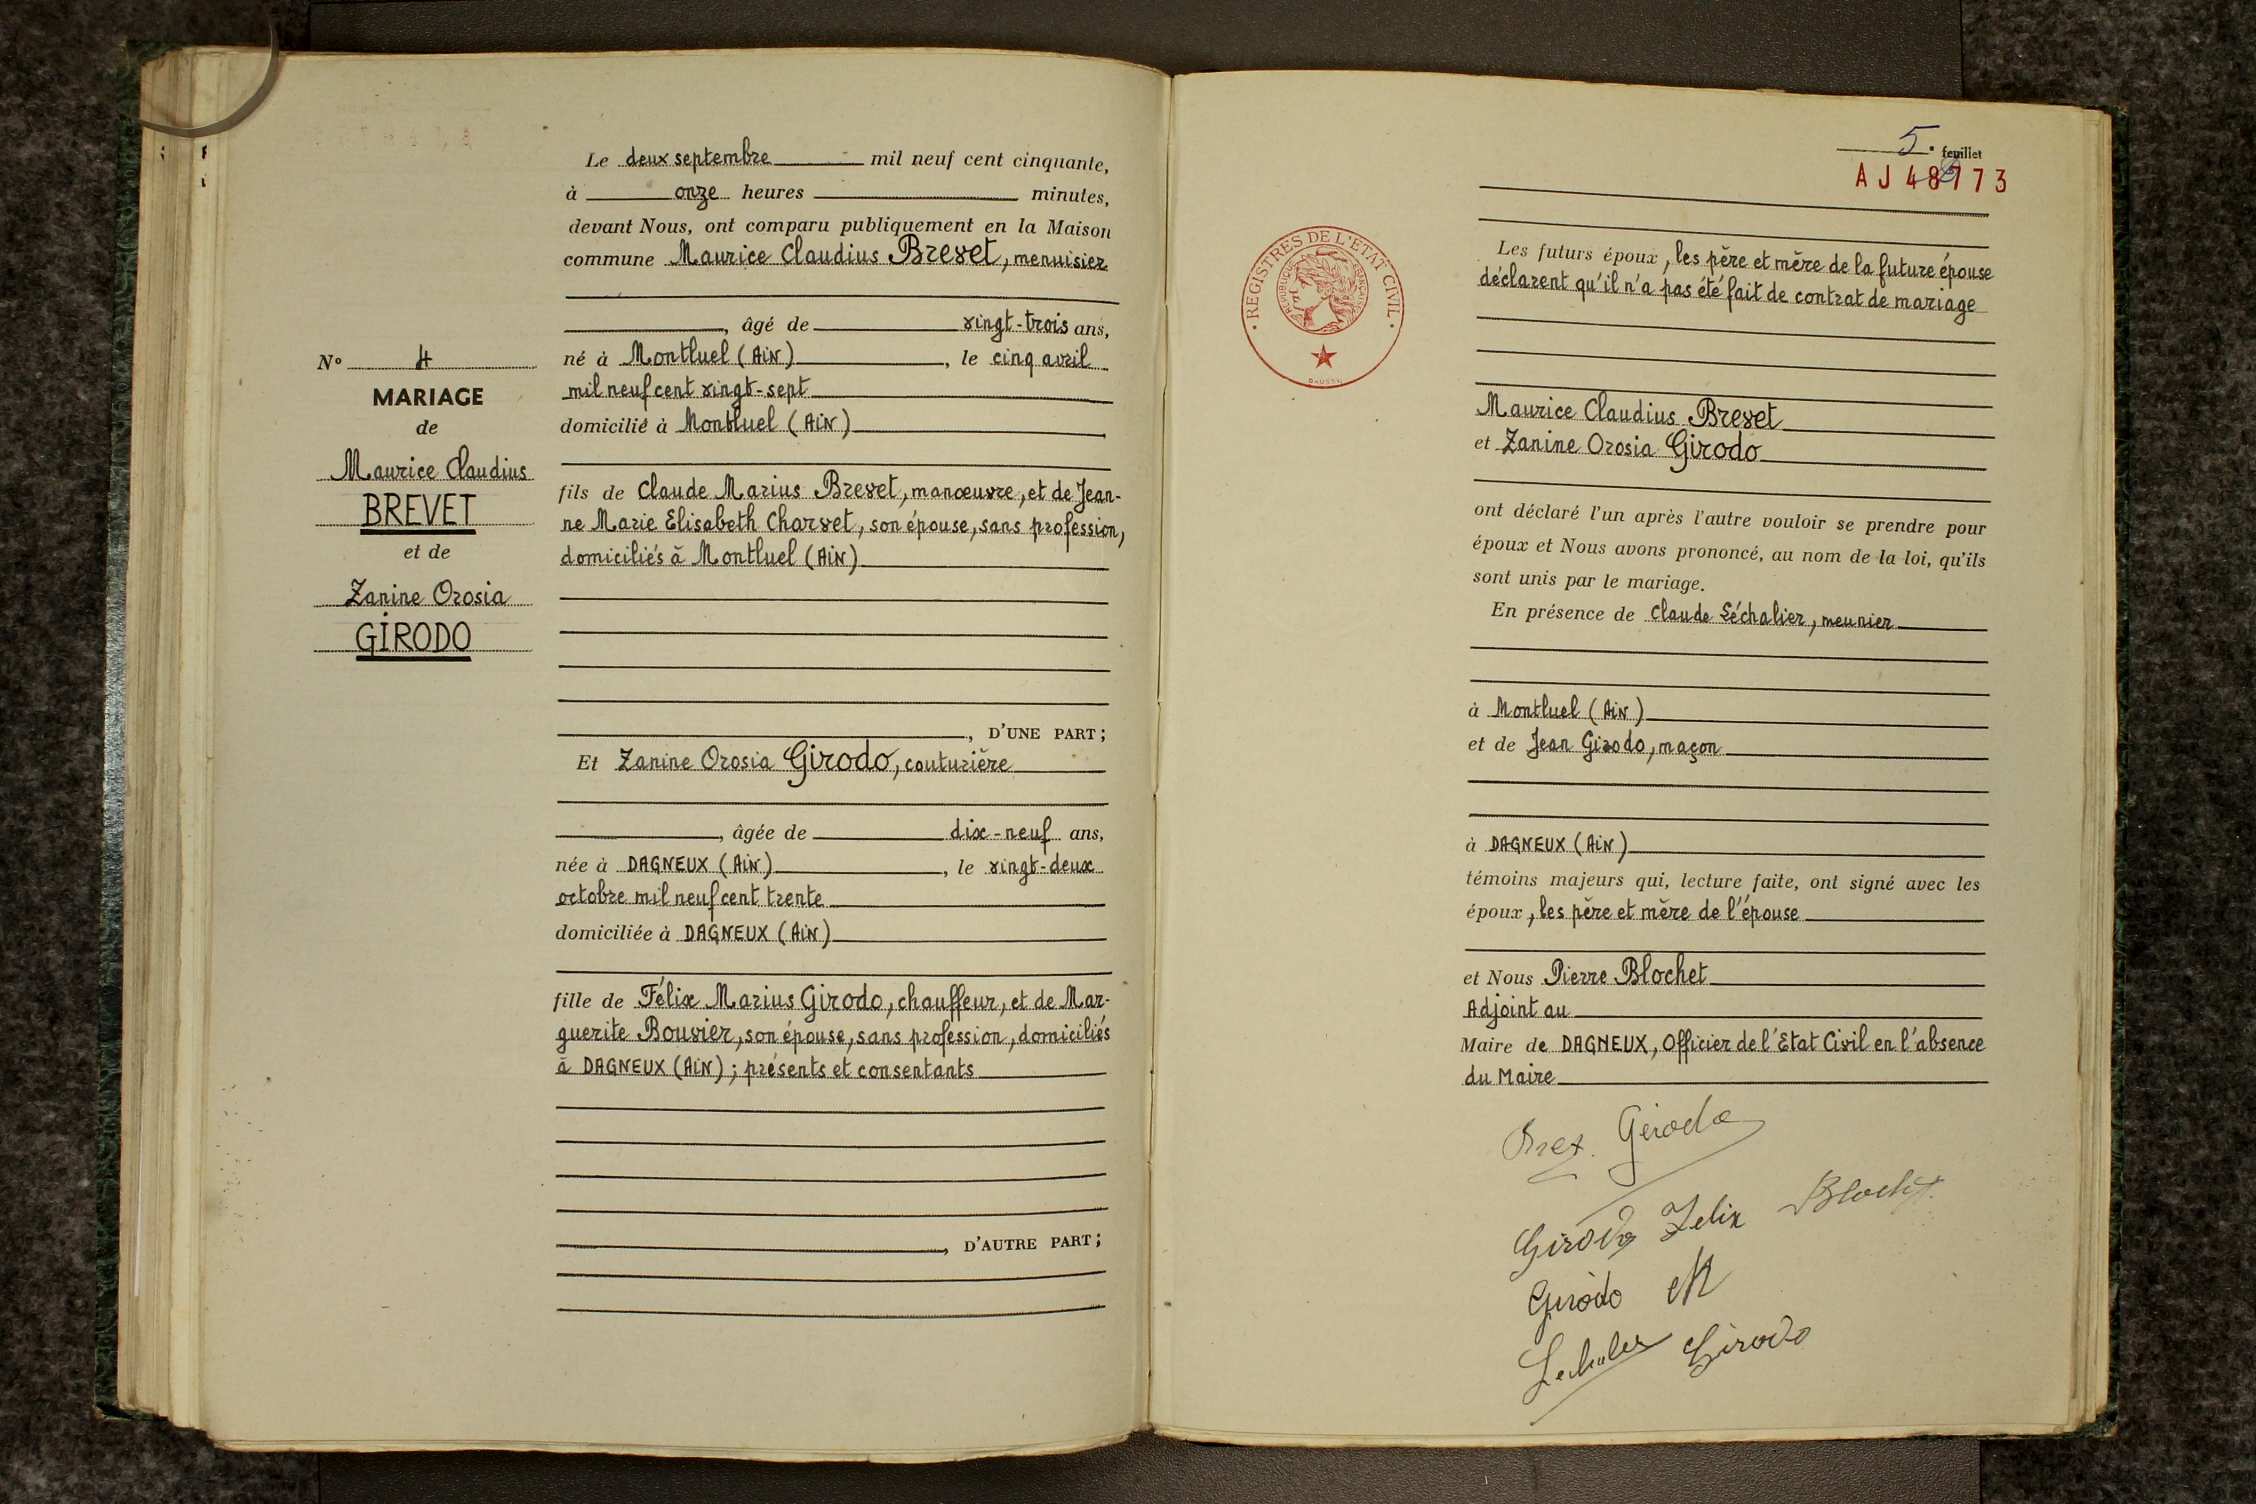 Le deux septembre mil neuf cent cinquante,
à onze heures minutes,
devant Nous, ont comparu publiquement en la Maison
commune Maurice Claudius Brevet, menuisier
, âgé de vingt-trois ans,
né à Montluel (AiN), le cinq avril
mil neuf cent vingt-sept
domicilié à Montluel (AiN)
fils de Claude Marius Brevet, manœuvre, et de Jean-
ne Marie Elisabeth Charvet, son épouse, sans profession,
domiciliés à Montluel (AiN)
, D'UNE PART ;
Et Zanine Orosia Girodo, couturière
, âgée de dix-neuf ans,
née à DAGNEUX (AiN), le vingt-deux
octobre mil neuf cent trente
domiciliée à DAGNEUX (AiN)
fille de Félix Marius Girodo, chauffeur, et de Mar-
guerite Bouvier, son épouse, sans profession, domiciliés
à DAGNEUX (AiN) ; présents et consentants
, D'AUTRE PART ;
N° 4
MARIAGE
de
Maurice Claudius
BREVET
et de
Zanine Orosia
GIRODO
5e feuillet
AJ 48773
REGISTRES DE L'ETAT CIVIL
REPUBLIQUE FRANÇAISE
Les futurs époux, les père et mère de la future épouse
déclarent qu'il n'a pas été fait de contrat de mariage
Maurice Claudius Brevet
et Zanine Orosia Girodo
ont déclaré l'un après l'autre vouloir se prendre pour
époux et Nous avons prononcé, au nom de la loi, qu'ils
sont unis par le mariage.
En présence de Claude Léchalier, meunier
à Montluel (AiN)
et de Jean Girodo, maçon
à DAGNEUX (AiN)
témoins majeurs qui, lecture faite, ont signé avec les
époux, les père et mère de l'épouse
et Nous Pierre Blochet
Adjoint au
Maire de DAGNEUX, Officier de l'Etat Civil en l'absence
du Maire
Girodo
Girodo Felix Blochet
Girodo M
Girodo